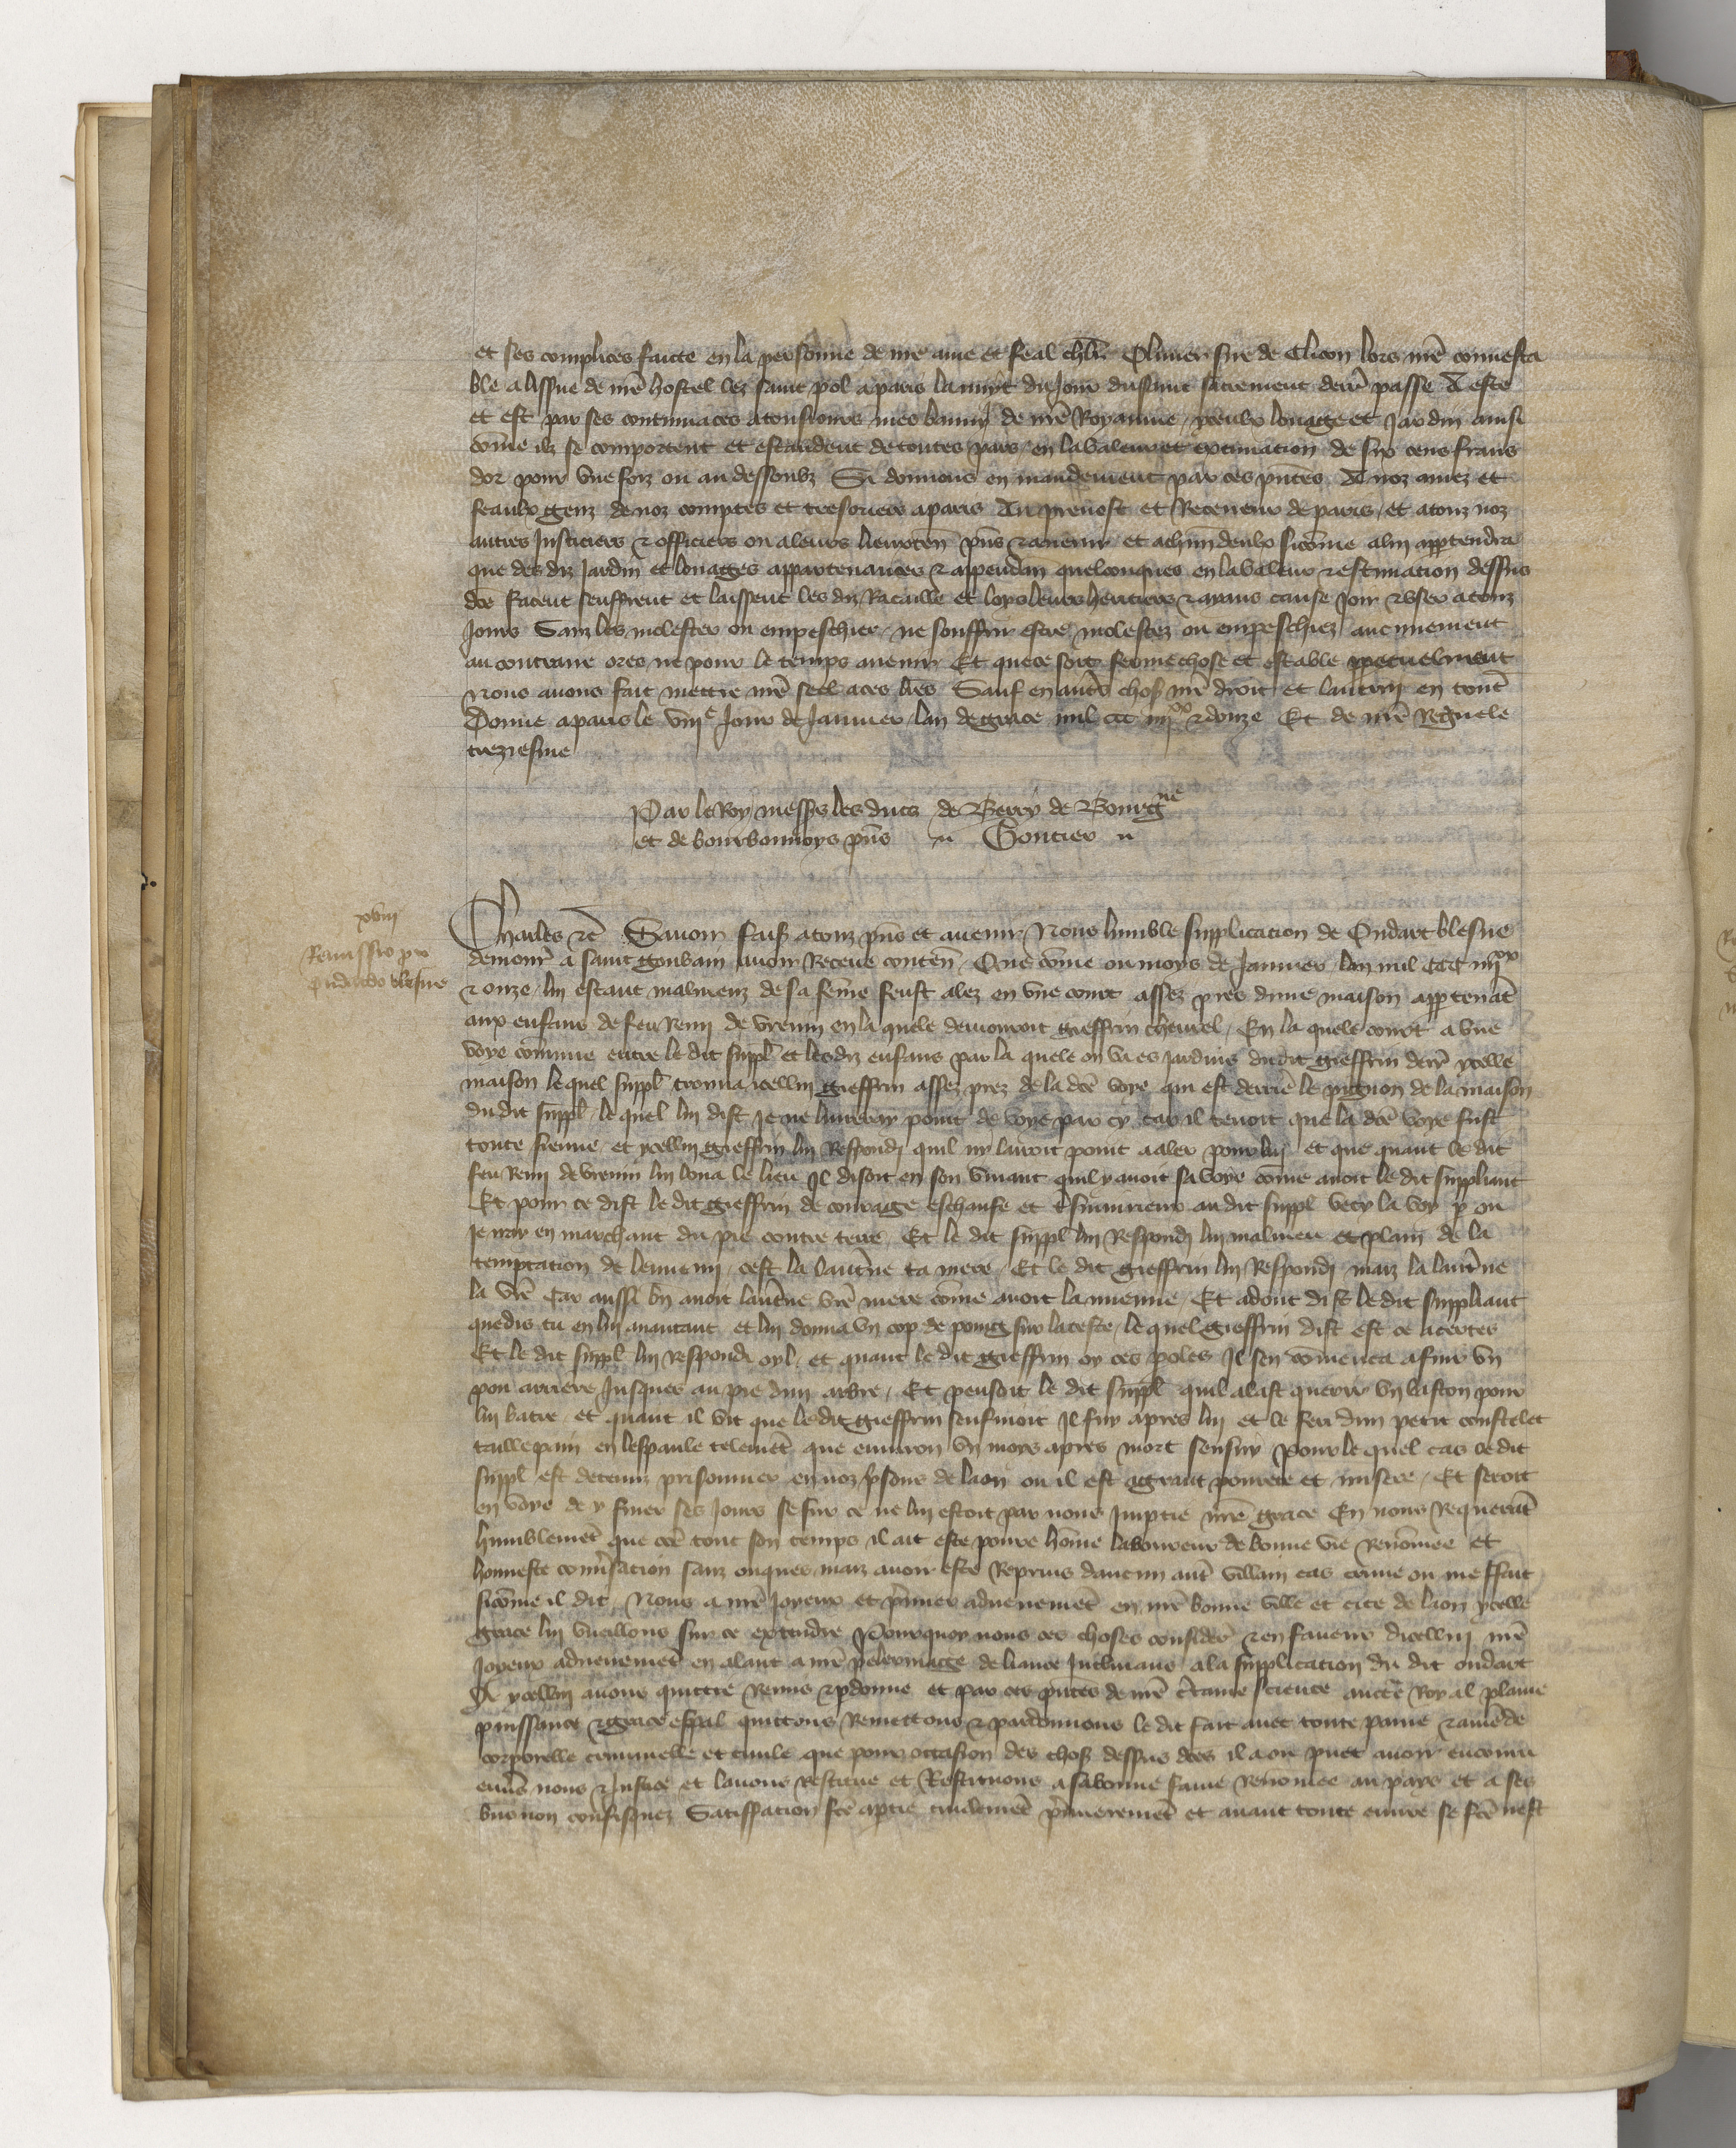 et ses complices faicte en la personne de nre ame et feal chlr Olivier sire de Clicon lors nre connesta
ble a lissue de nre hostel lez saint pol a paris la nuyt du Jour du saint sacrement derr passe A este
et est par ses contumaces a tousiours mes banny de nre Royaume yceulx louage et Jardin ainsi
come ilz se comportent et estandent de toutes pars en la valeur et extimacion de six cens frans
dor pour vne foiz ou au dessoubz Si donnons en mandement par ces pntes A noz amez et
feaulx genz de noz comptes et tresoriers a paris Au prevost et Receveur de paris et a touz noz
autres Justiciers & officiers ou a leurs lieuxten pns & avenir et a chun deulx sicome a lui apptendra
que des diz Jardin et louages appartenances & appendan quelconques en la valeur & estimacion dessus
dce facent seuffrent et laissent les diz Racaille et Loys leurs heritiers & aians cause Joir & user a touz
Jours Sanz les molester ou empeschier ne souffrir estre molestez ou empeschiez aucunement
au contraire ores ne pour le temps avenir Et que ce soit ferme chose et estable ppetuelment
Nous avons fait mettre nre seel a ces lres Sauf en autres choses nre droit et lautruy en tout
Donne a paris le viije Jour de Janvier lan de grace mil ccc iiijxx & douze Et de nre Regne le
treziesme
Par le Roy messrs les ducs de Berry de Bourgne
et de bourbonnoys pns Gontier
xviij
Remissio pro
oudardo blesne
Charles &c Savoir faiss a touz pns et avenir Nous humble supplicacion de Oudart blesne
demour a saint goubain avoir Receue conten Que come ou moys de Janvier lan mil ccc iiijxx
& onze lui estant malmeuz de sa feme feust alez en vne court assez pres dune maison apptenat
aux enfans de feu Remy de vrevin en la quele demouroit gieffrin chevrel En la quele court a vne
voye comune entre le dit suppl et lesdiz enfans par la quele on va es Jardins dudit gieffrin derr ycelle
maison le quel suppl trouva icellui gieffrin assez prez de la dce voye qui est derrie le pignon de la maison
du dit suppl le quel lui dist Je ne liveray point de voye par cy car il tenoit que la dce voye fust
toute sienne et ycellui gieffrin lui Respondi quil ny lairoit point a aler pour lui et que quant le dit
feu Remy de vrevin lui loua le lieu Il disoit en son vivant quil y avoit sa voye come avoit le dit suppliant
Et pour ce dist le dit gieffrin de couraige eschaufe et Iniurieux au dit suppl vecy la voy p ou
Je iray en marchant du pie contre terre Et le dit suppl lui Respondi lui malmeu et plain de la
temptacion de lennemi cest la ta mere Et le dit gieffrin lui Respondi maiz la
la vre Car aussi bn avoit vre mere come avoit la mienne Et adont dist le dit suppliant
que dis tu en lui avancant et lui donna vn cop de poing sur la teste le quel gieffrin dist est ce a certes
Et le dit suppl lui respondi oyl et quant le dit gieffrin oy ces poles Il sen comenca a fuir vn
pou arriere Jusques au pie dun arbre Et pensoit le dit suppl quil alast querir vn baston pour
lui batre et quant il vit que le dit gieffrin senfuioit Il fuy apres lui et le feri dun petit coustelet
taillepain en lespaule telemet que environ vn moys apres mort sensuy Pour le quel cas le dit
suppl est detenuz prisonnier en noz prisons de laon ou il est a grant povrete et misere Et seroit
en voye de y finer ses Jours se sur ce ne lui estoit par nous Imptie nre grace En nous Requerat
humblemet que ce tout son temps il ait este povre home laboureur de bonne vie Renomee et
honneste conversacion sanz onques maiz avoir este Reprins daucun aut villain cas crime ou meffait
sicome il dit Nous a nre Joyeux et prmier advenemet en nre bonne ville et cite de laon ycelle
grace lui vueillons sur ce extendre Pourquoy nous ces choses consider & en faveur dicellui nre
Joyeux advenemet en alant a nre pelerinage de liance Inclinans a la supplicacion du dit oudart
A ycellui avons quittie Remis & pdonne et par ces pntes de nre ctaine science auctte Royal plaine
puissance & grace espal quittons Remettons & pardonnons le dit fait avec toute paine & amede
corporelle criminelle et civile que pour occasion des choses dessus dces il a ou puet avoir encouru
envers nous & Justice et lavons restitue et Restituons a sa bonne fame renomee au pays et a ses
biens non confisquez Satisfacion fce a ptie civilemet prmieremet et avant toute euvre se fce nest